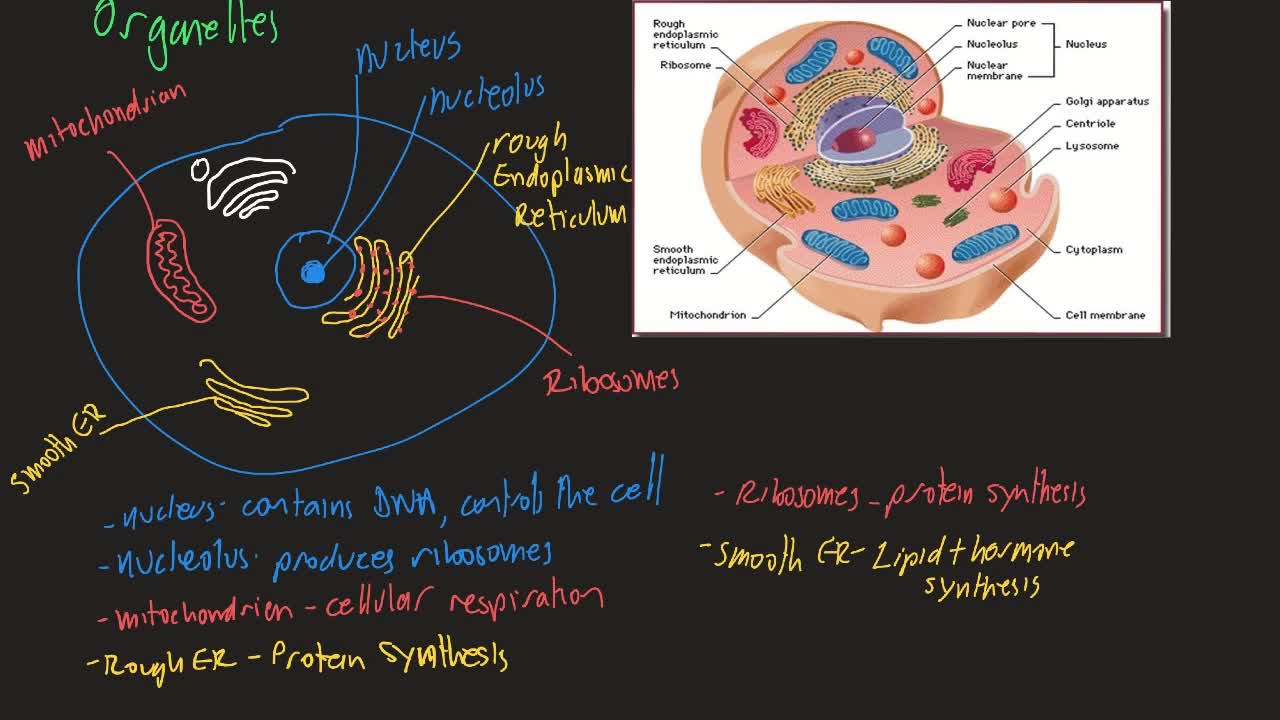 Organelles
nucleus
nucleolus
mitochondrian
rough
Endoplasmic
Reticulum
Ribosomes
Smooth ER
Rough
endoplasmic
reticulum
Ribosome
Smooth
endoplasmic
reticulum
Mitochondrion
Nuclear pore
Nucleolus
Nuclear
membrane
Nucleus
Golgi apparatus
Centriole
Lysosome
Cytoplasm
Cell membrane
- nucleus - contains DNA, controls the cell
- nucleolus - produces ribosomes
- mitochondrion - cellular respiration
- Rough ER - Protein Synthesis
- Ribosomes - protein synthesis
- Smooth ER - Lipid + hormone
synthesis